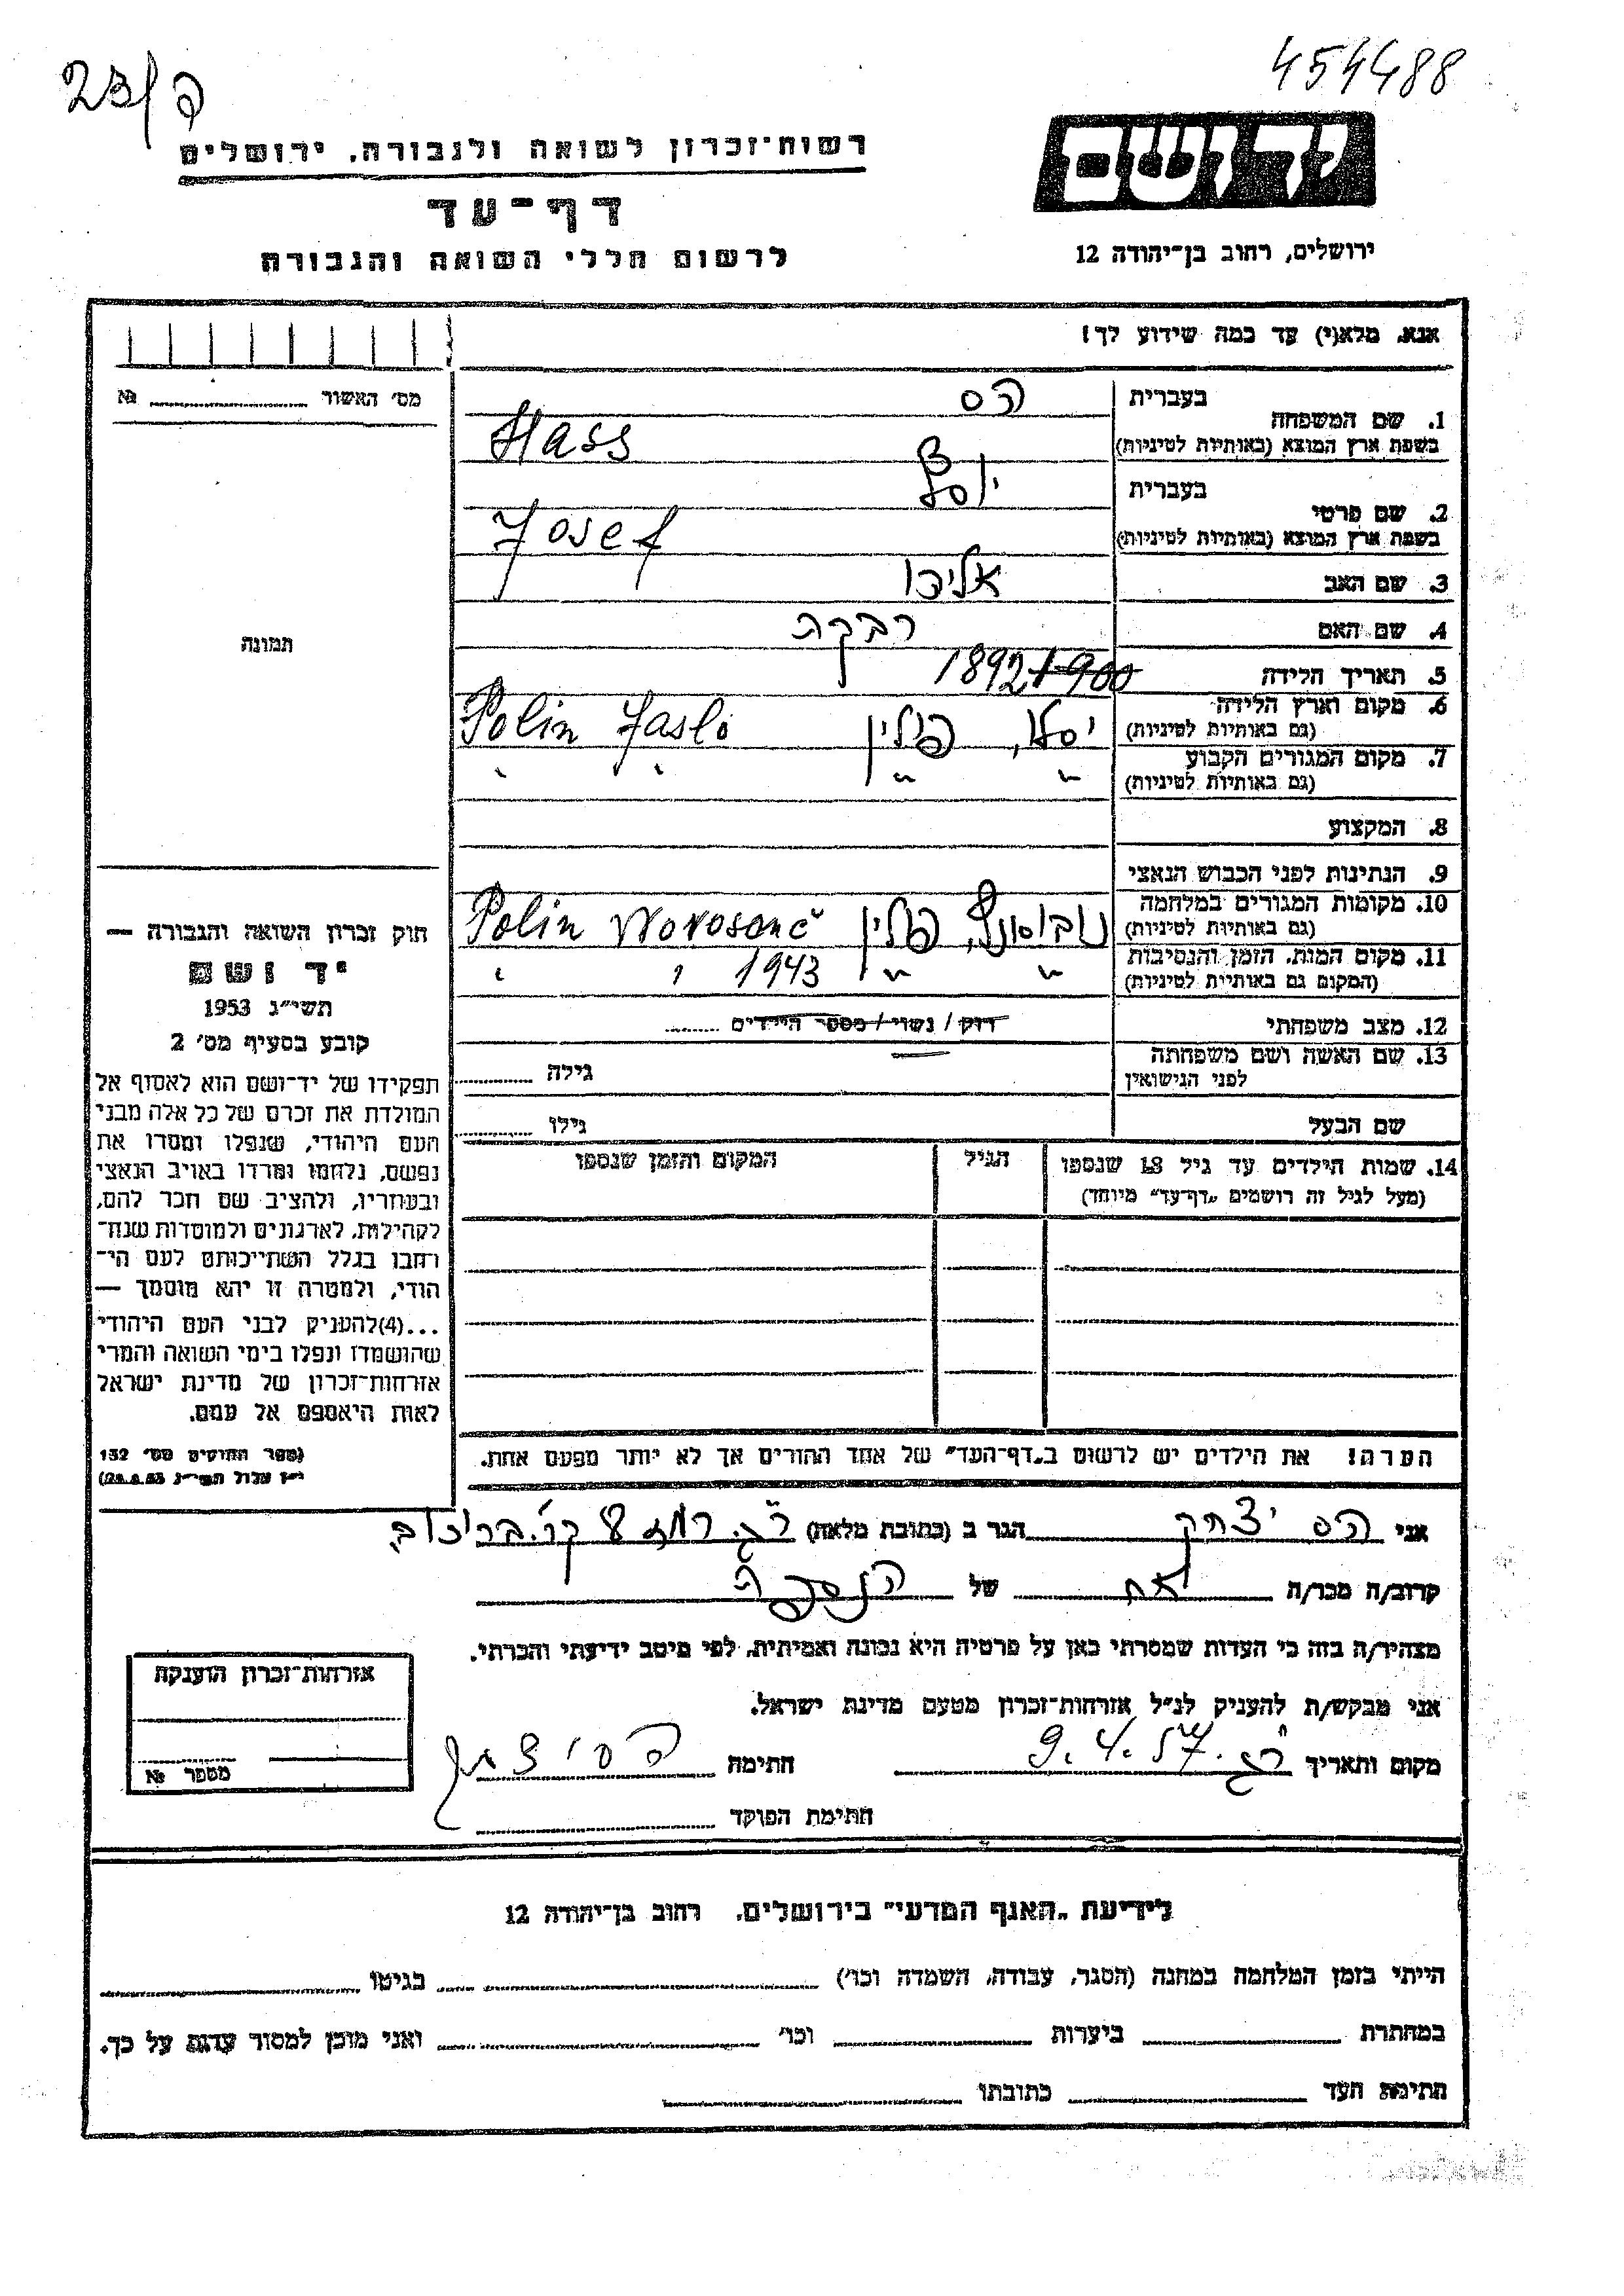 454488
23/ק
יד ושם
ירושלים, רחוב בן־יהודה 12
רשות־זכרון לשואה ולגבורה, ירושלים
דף־עד
לרשום חללי השואה והגבורה
אנא, מלא(י) עד כמה שידוע לך!
מס׳ האשור № 
תמונה
1. שם המשפחה בעברית הס
בשפת ארץ המוצא (באותיות לטיניות) Hass
2. שם פרטי בעברית יוסף
בשפת ארץ המוצא (באותיות לטיניות) Josef
3. שם האב אליהו
4. שם האם רבקה
5. תאריך הלידה 1900 1892
6. מקום וארץ הלידה (גם באותיות לטיניות) יסלו, פולין Polin Jaslo
7. מקום המגורים הקבוע (גם באותיות לטיניות) " "
8. המקצוע
9. הנתינות לפני הכבוש הנאצי
10. מקומות המגורים במלחמה (גם באותיות לטיניות) פולין Polin
11. מקום המות, הזמן והנסיבות (המקום גם באותיות לטיניות) " " 1943
12. מצב משפחתי רוק / נשוי / מספר הילדים
13. שם האשה ושם משפחתה לפני הנישואין גילה
שם הבעל גילו
14. שמות הילדים עד גיל 18 שנספו הגיל המקום והזמן שנספו
(מעל לגיל זה רושמים „דף־עד" מיוחד)
הערה! את הילדים יש לרשום ב„דף־העד" של אחד ההורים אך לא יותר מפעם אחת.
חוק זכרון השואה והגבורה —
יד ושם
תשי״ג 1953
קובע בסעיף מס׳ 2
תפקידו של יד־ושם הוא לאסוף אל
המולדת את זכרם של כל אלה מבני
העם היהודי, שנפלו ומסרו את
נפשם, נלחמו ומרדו באויב הנאצי
ובעוזריו, ולהציב שם וזכר להם,
לקהילות, לארגונים ולמוסדות שנח־
רחבו בגלל השתייכותם לעם הי־
הודי, ולמטרה זו יהא מוסמך —
...(4)להעניק לבני העם היהודי
שהושמדו ונפלו בימי השואה והמרי
אזרחות־זכרון של מדינת ישראל
לאות היאספם אל עמם.
(ספר החוקים מס׳ 132
י״ז אלול תשי״ג 28.8.53)
אני הס יצחק הגר ב (כתובת מלאה) ר״ג
קרוב/ה מכר/ה אח של הנספה
מצהיר/ה בזה כי העדות שמסרתי כאן על פרטיה היא נכונה ואמיתית, לפי מיטב ידיעתי והכרתי.
אני מבקש/ת להעניק לנ״ל אזרחות־זכרון מטעם מדינת ישראל.
מקום ותאריך ר״ג. 9.4.57 חתימה הס יצחק
חתימת הפוקד
אזרחות־זכרון הוענקה
מספר №
לידיעת „האגף המדעי" בירושלים, רחוב בן־יהודה 12
הייתי בזמן המלחמה במחנה (הסגר, עבודה, השמדה וכו׳) בגיטו
במחתרת ביערות וכו׳ ואני מוכן למסור עדות על כך.
חתימת העד כתובתו